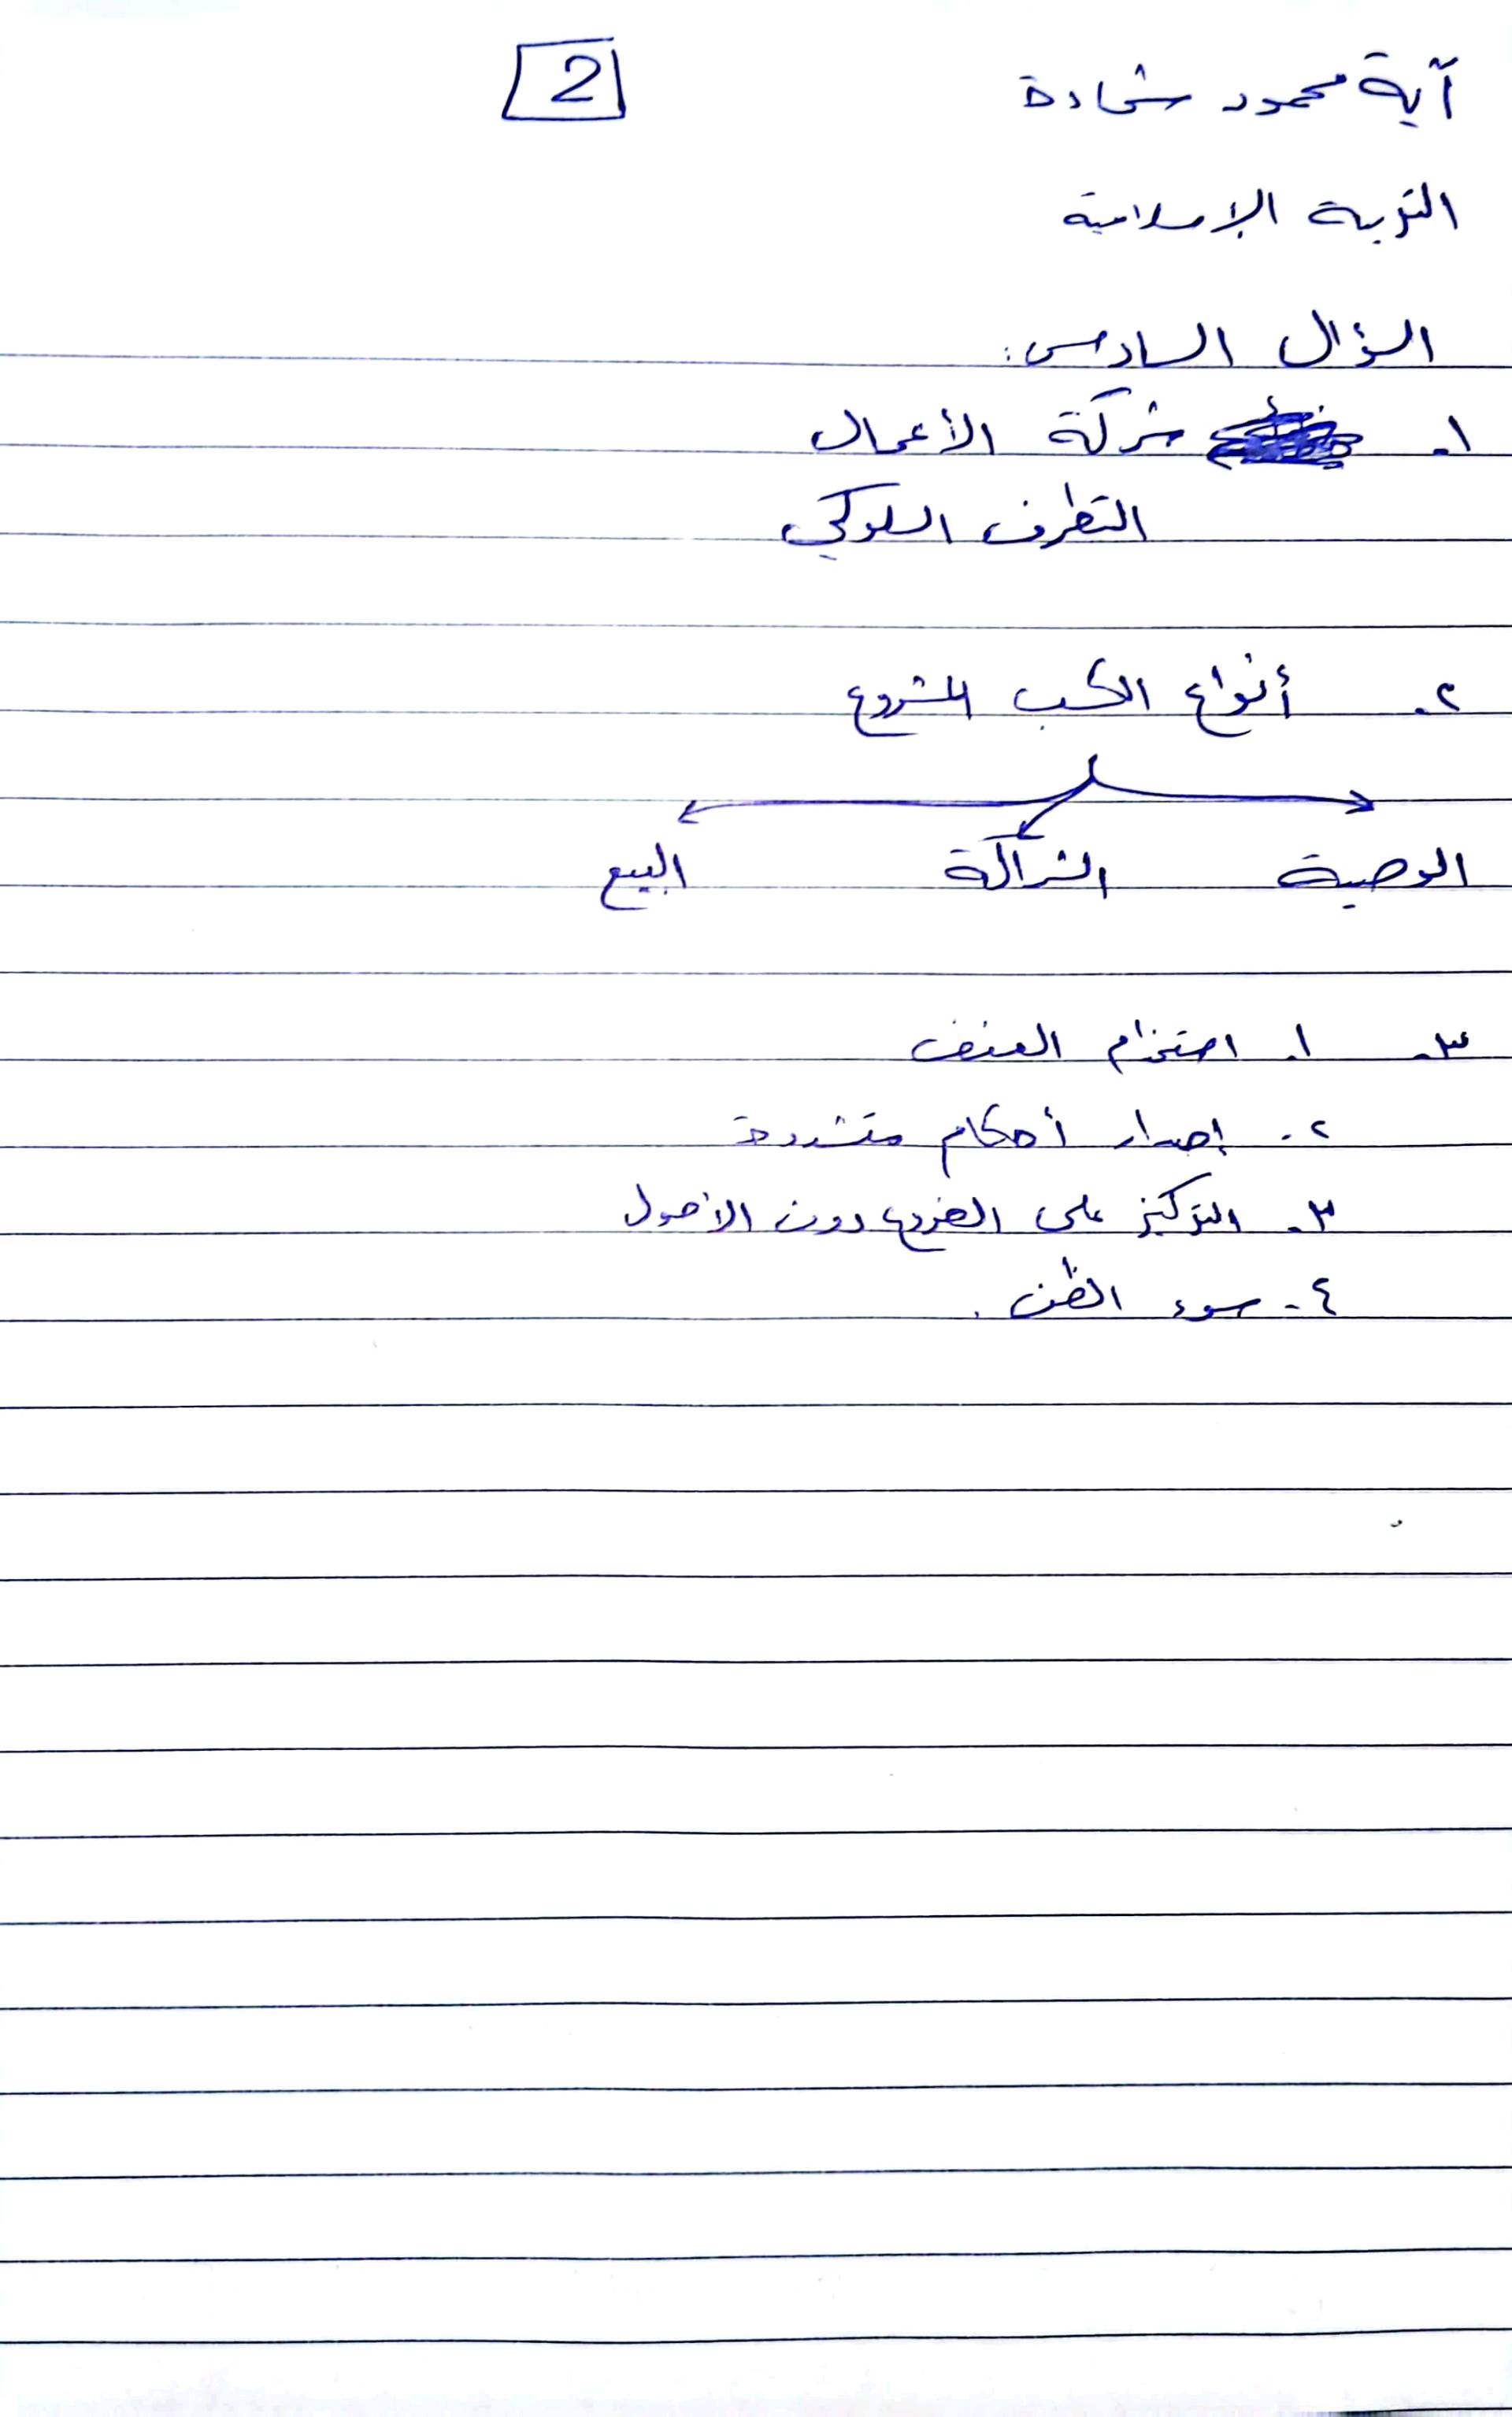 آية محمود شحادة 2
التربية الإسلامية
السؤال السادس:
١. شركة الأعمال
التطرف السلوكي
٢. أنواع الكسب المشروع
الوصية الشراكة البيع
٣. ١. استخدام العنف
٢. إصدار أحكام متشددة
٣. التركيز على الفروع دون الأصول
٤. سوء الظن.